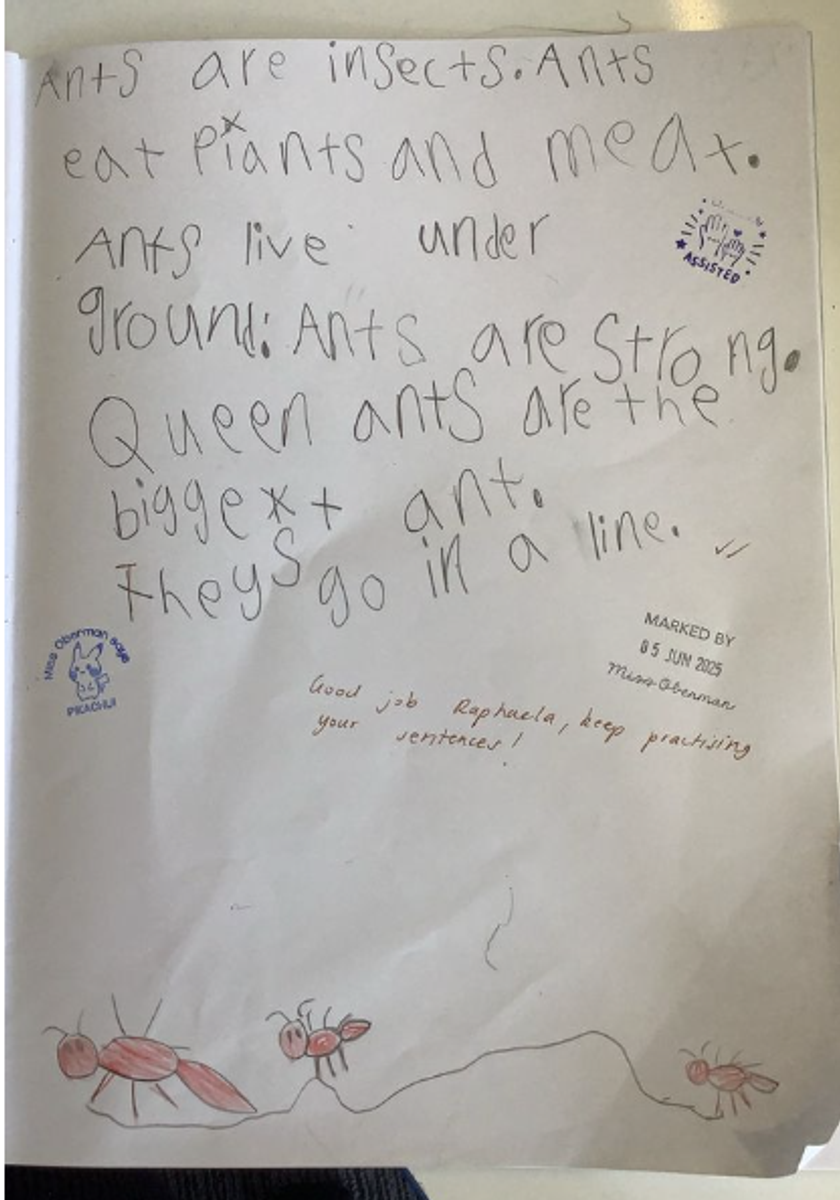 Ants are insects. Ants
eat Plants and meat.
Ants live under
ASSISTED
ground. Ants are Strong.
Queen ants are the
biggest ant.
They go in a line.
Miss Oberman says
PIKACHU!
MARKED BY
05 JUN 2025
Miss Oberman
Good job Raphaela, keep practising
your sentences!